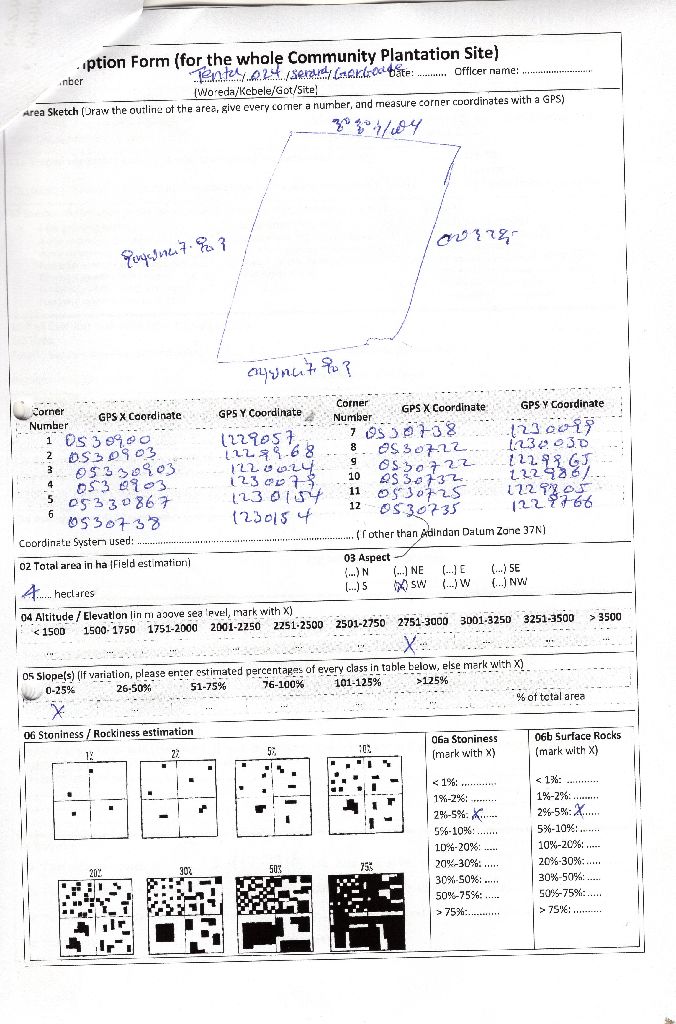 ption Form (for the whole Community Plantation Site)
nber Tenta/024/ Date: .......... Officer name: ......................
(Woreda/Kebele/Got/Site)
Area Sketch (Draw the outline of the area, give every corner a number, and measure corner coordinates with a GPS)
Corner Number GPS X Coordinate GPS Y Coordinate Corner Number GPS X Coordinate GPS Y Coordinate
1 0530900 1229057 7 0530738 1230099
2 0530903 1229968 8 0530722 1230030
3 05330903 1220024 9 0530722 1229965
4 0530903 1230079 10 0530732 1229861
5 05330867 1230154 11 0530725 1229805
6 0530738 1230154 12 0530735 1229766
Coordinate System used: ...................... (If other than Adindan Datum Zone 37N)
02 Total area in ha (Field estimation)
4..... hectares
03 Aspect
(...) N (...) NE (...) E (...) SE
(...) S (X) SW (...) W (...) NW
04 Altitude / Elevation (in m above sea level, mark with X)
< 1500 1500-1750 1751-2000 2001-2250 2251-2500 2501-2750 2751-3000 3001-3250 3251-3500 > 3500
X
05 Slope(s) (If variation, please enter estimated percentages of every class in table below, else mark with X)
0-25% 26-50% 51-75% 76-100% 101-125% >125%
X % of total area
06 Stoniness / Rockiness estimation
1% 2% 5% 10%
20% 30% 50% 75%
06a Stoniness
(mark with X)
< 1%: ............
1%-2%: .........
2%-5%: .X.....
5%-10%: .......
10%-20%: .....
20%-30%: .....
30%-50%: .....
50%-75%: .....
> 75%:...........
06b Surface Rocks
(mark with X)
< 1%: ...........
1%-2%: .........
2%-5%: .X.....
5%-10%: .......
10%-20%: .....
20%-30%: .....
30%-50%: .....
50%-75%: .....
> 75%: ..........